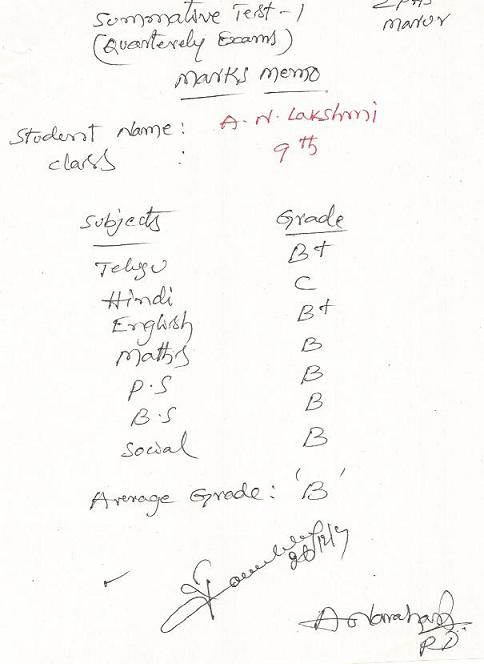 Summative Test - 1
(Quarterely Exams)
Marks Memo
Student Name : A. N. Lakshmi
class : 9th
Subjects Grade
Telugu B+
Hindi C
English B+
Maths B
P.S B
B.S B
Social B
Average Grade : 'B'